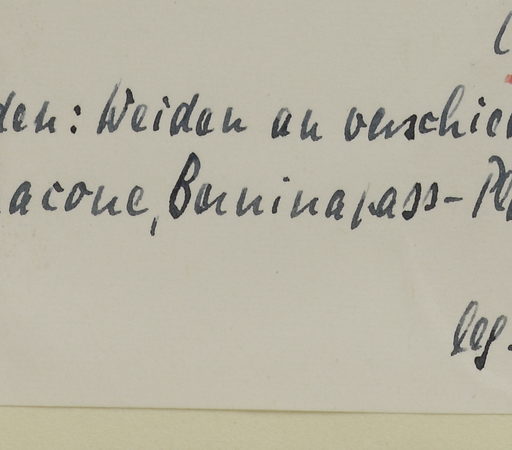 den: Weiden an verschie
acone, Berninapass-
leg.